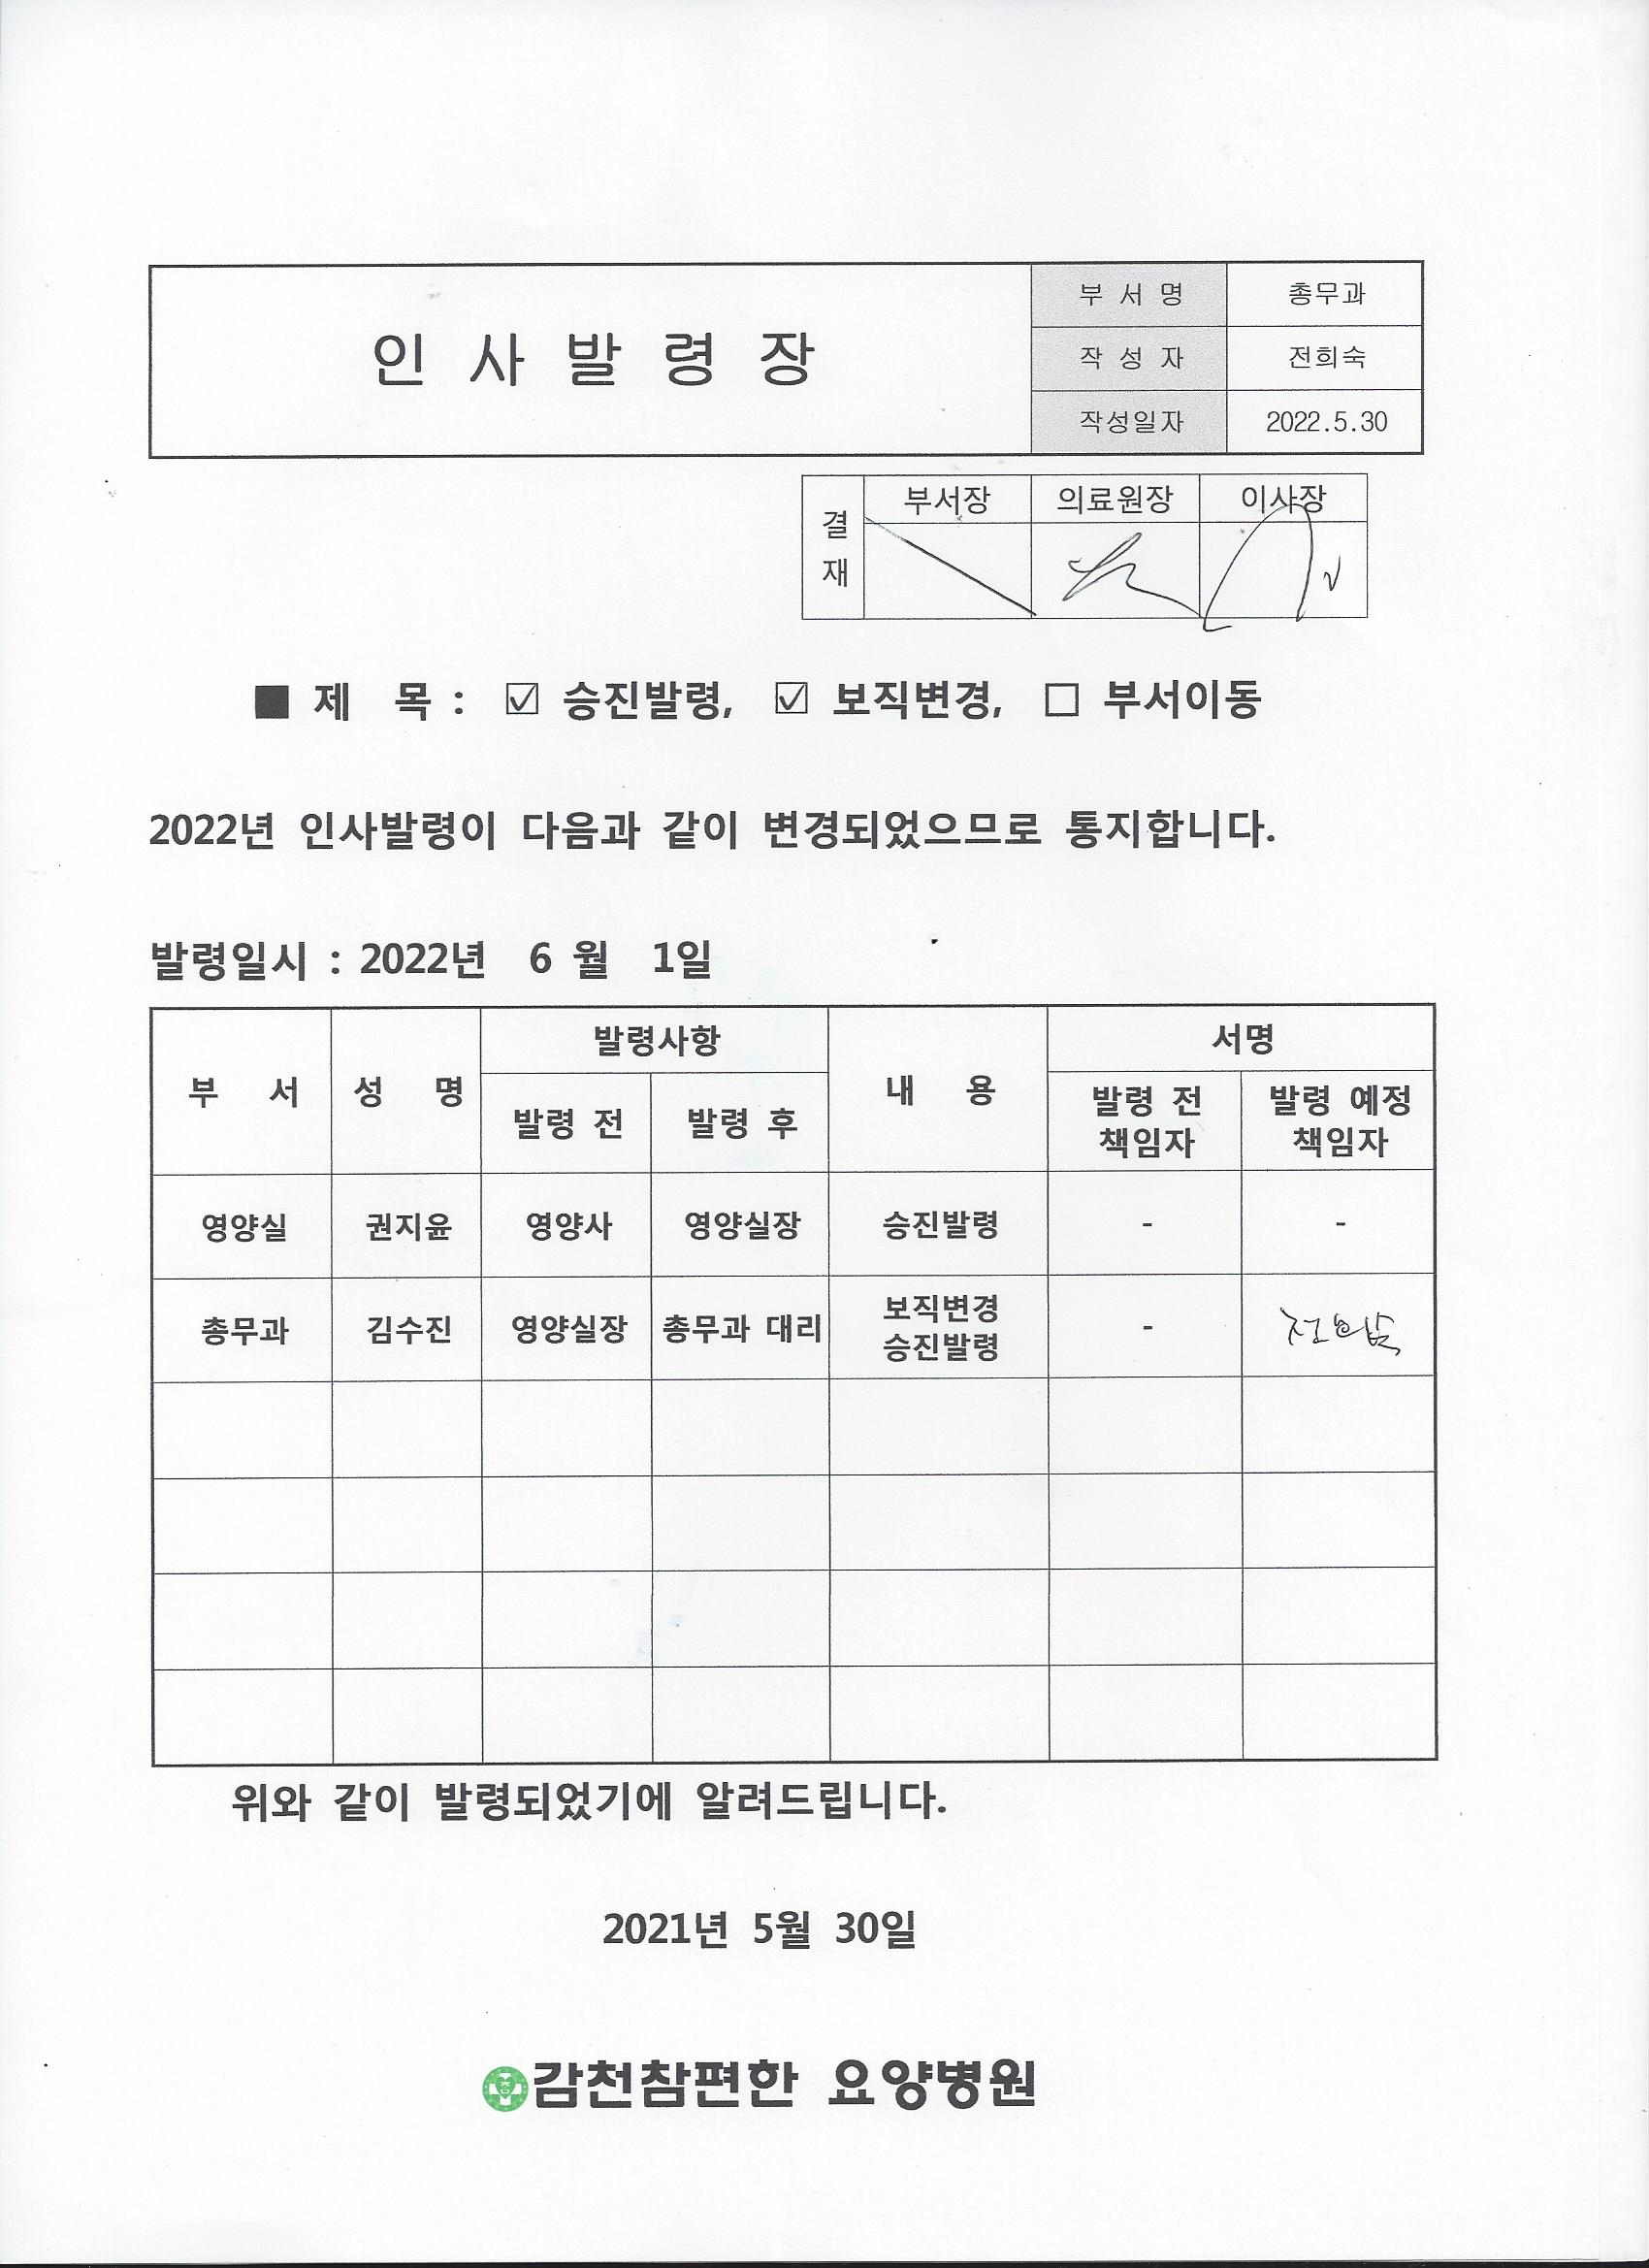 인 사 발 령 장
부 서 명 총무과
작 성 자 전희숙
작성일자 2022.5.30
결재 부서장 의료원장 이사장
■ 제 목 : ☑ 승진발령, ☑ 보직변경, □ 부서이동
2022년 인사발령이 다음과 같이 변경되었으므로 통지합니다.
발령일시 : 2022년 6 월 1일
부 서 성 명 발령사항 내 용 서명
발령 전 발령 후 발령 전 책임자 발령 예정 책임자
영양실 권지윤 영양사 영양실장 승진발령 - -
총무과 김수진 영양실장 총무과 대리 보직변경 승진발령 - 전희숙
위와 같이 발령되었기에 알려드립니다.
2021년 5월 30일
감천참편한 요양병원